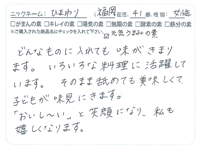 ニックネーム: ひまわり (福岡在住、41歳、性別 女性)
□がまんの素 □キレイの素 □陽気の素 □無限の素 □酵素の素 □鉄分の素
※ご購入された商品名にチェックを入れて下さい。 ☑元気うまみの素
どんなものに入れても 味がきまり
ます。 いろいろな料理に活躍して
います。 そのまま舐めても美味しくて、
子どもが味見にきます。
「おいし～い」と笑顔になり、私も
嬉しくなります。